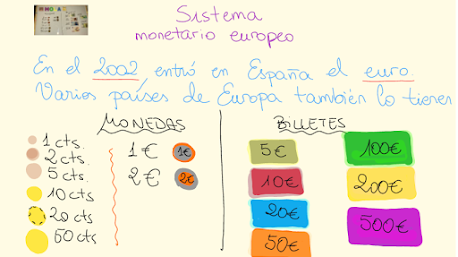 Sistema
monetario europeo
En el 2002, entró en España el euro.
Varios países de Europa también lo tienen
MONEDAS
1 cts.
2 cts.
5 cts.
10 cts
20 cts
50 cts
1€ 1€
2€ 2€
BILLETES
5€
10€
20€
50€
100€
200€
500€